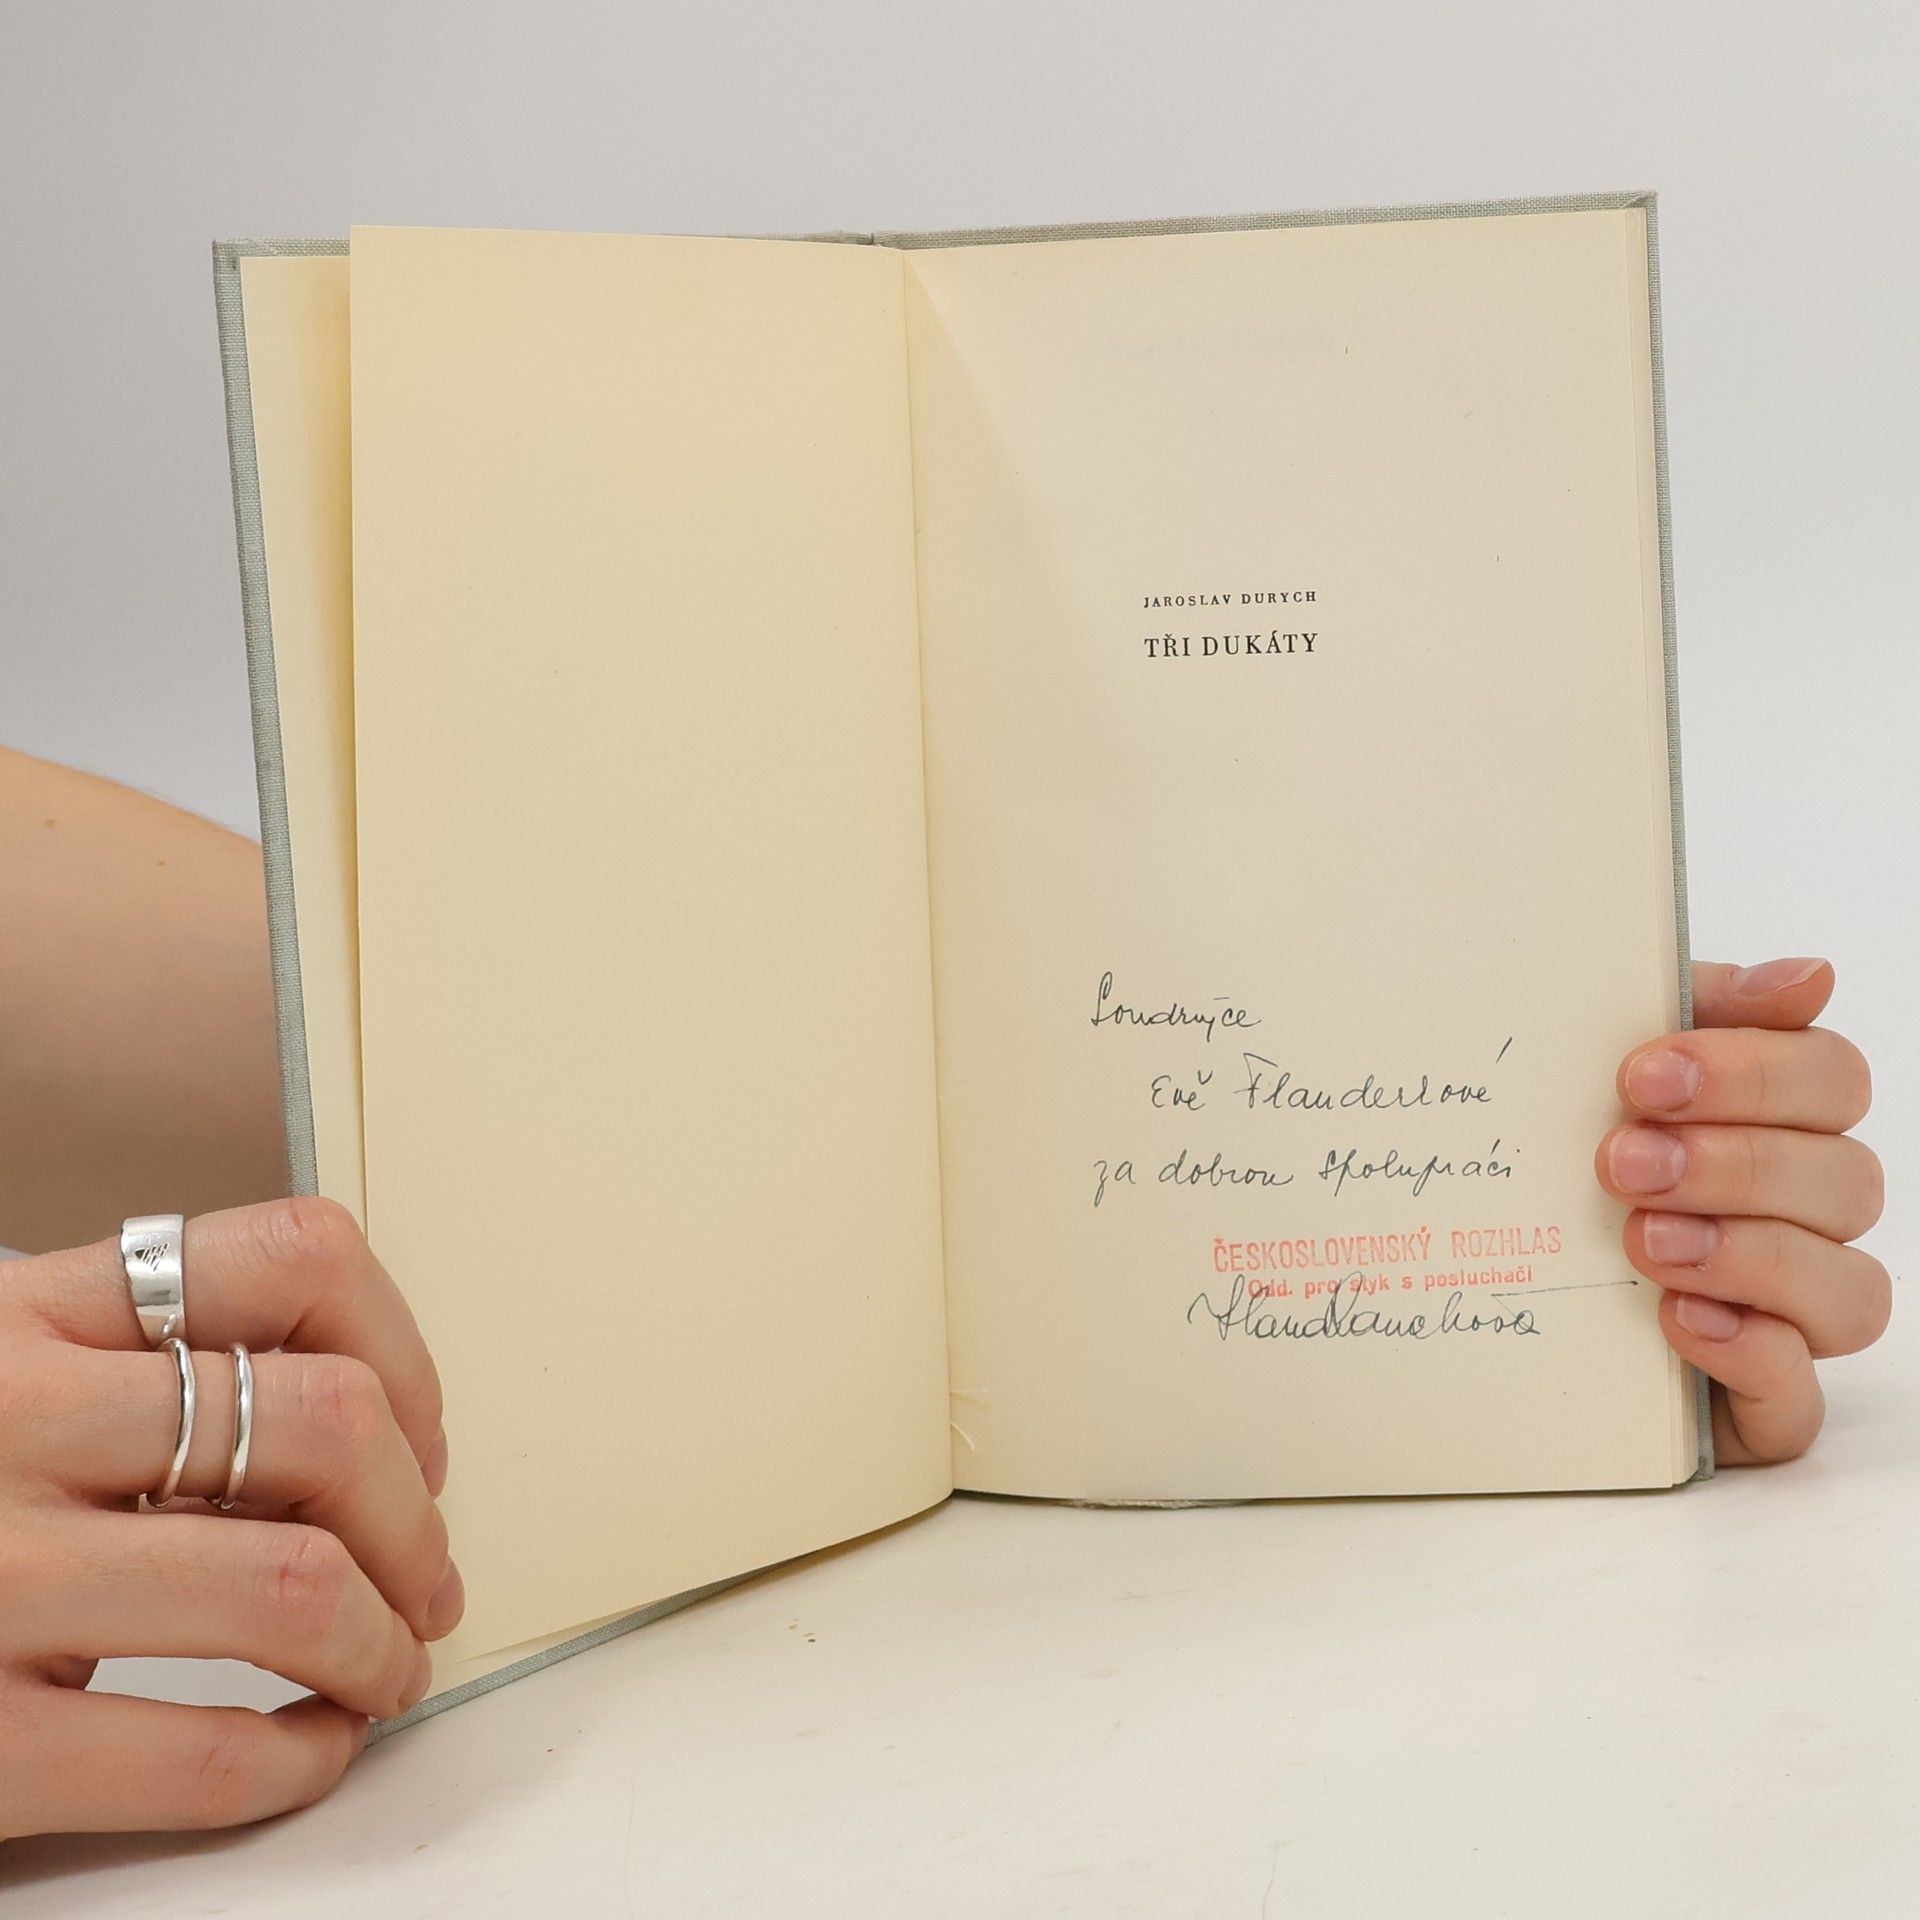 JAROSLAV DURYCH
TŘI DUKÁTY
Soudružce
Evě Flanderkové
za dobrou spolupráci
ČESKOSLOVENSKÝ ROZHLAS
Odd. pro styk s posluchači